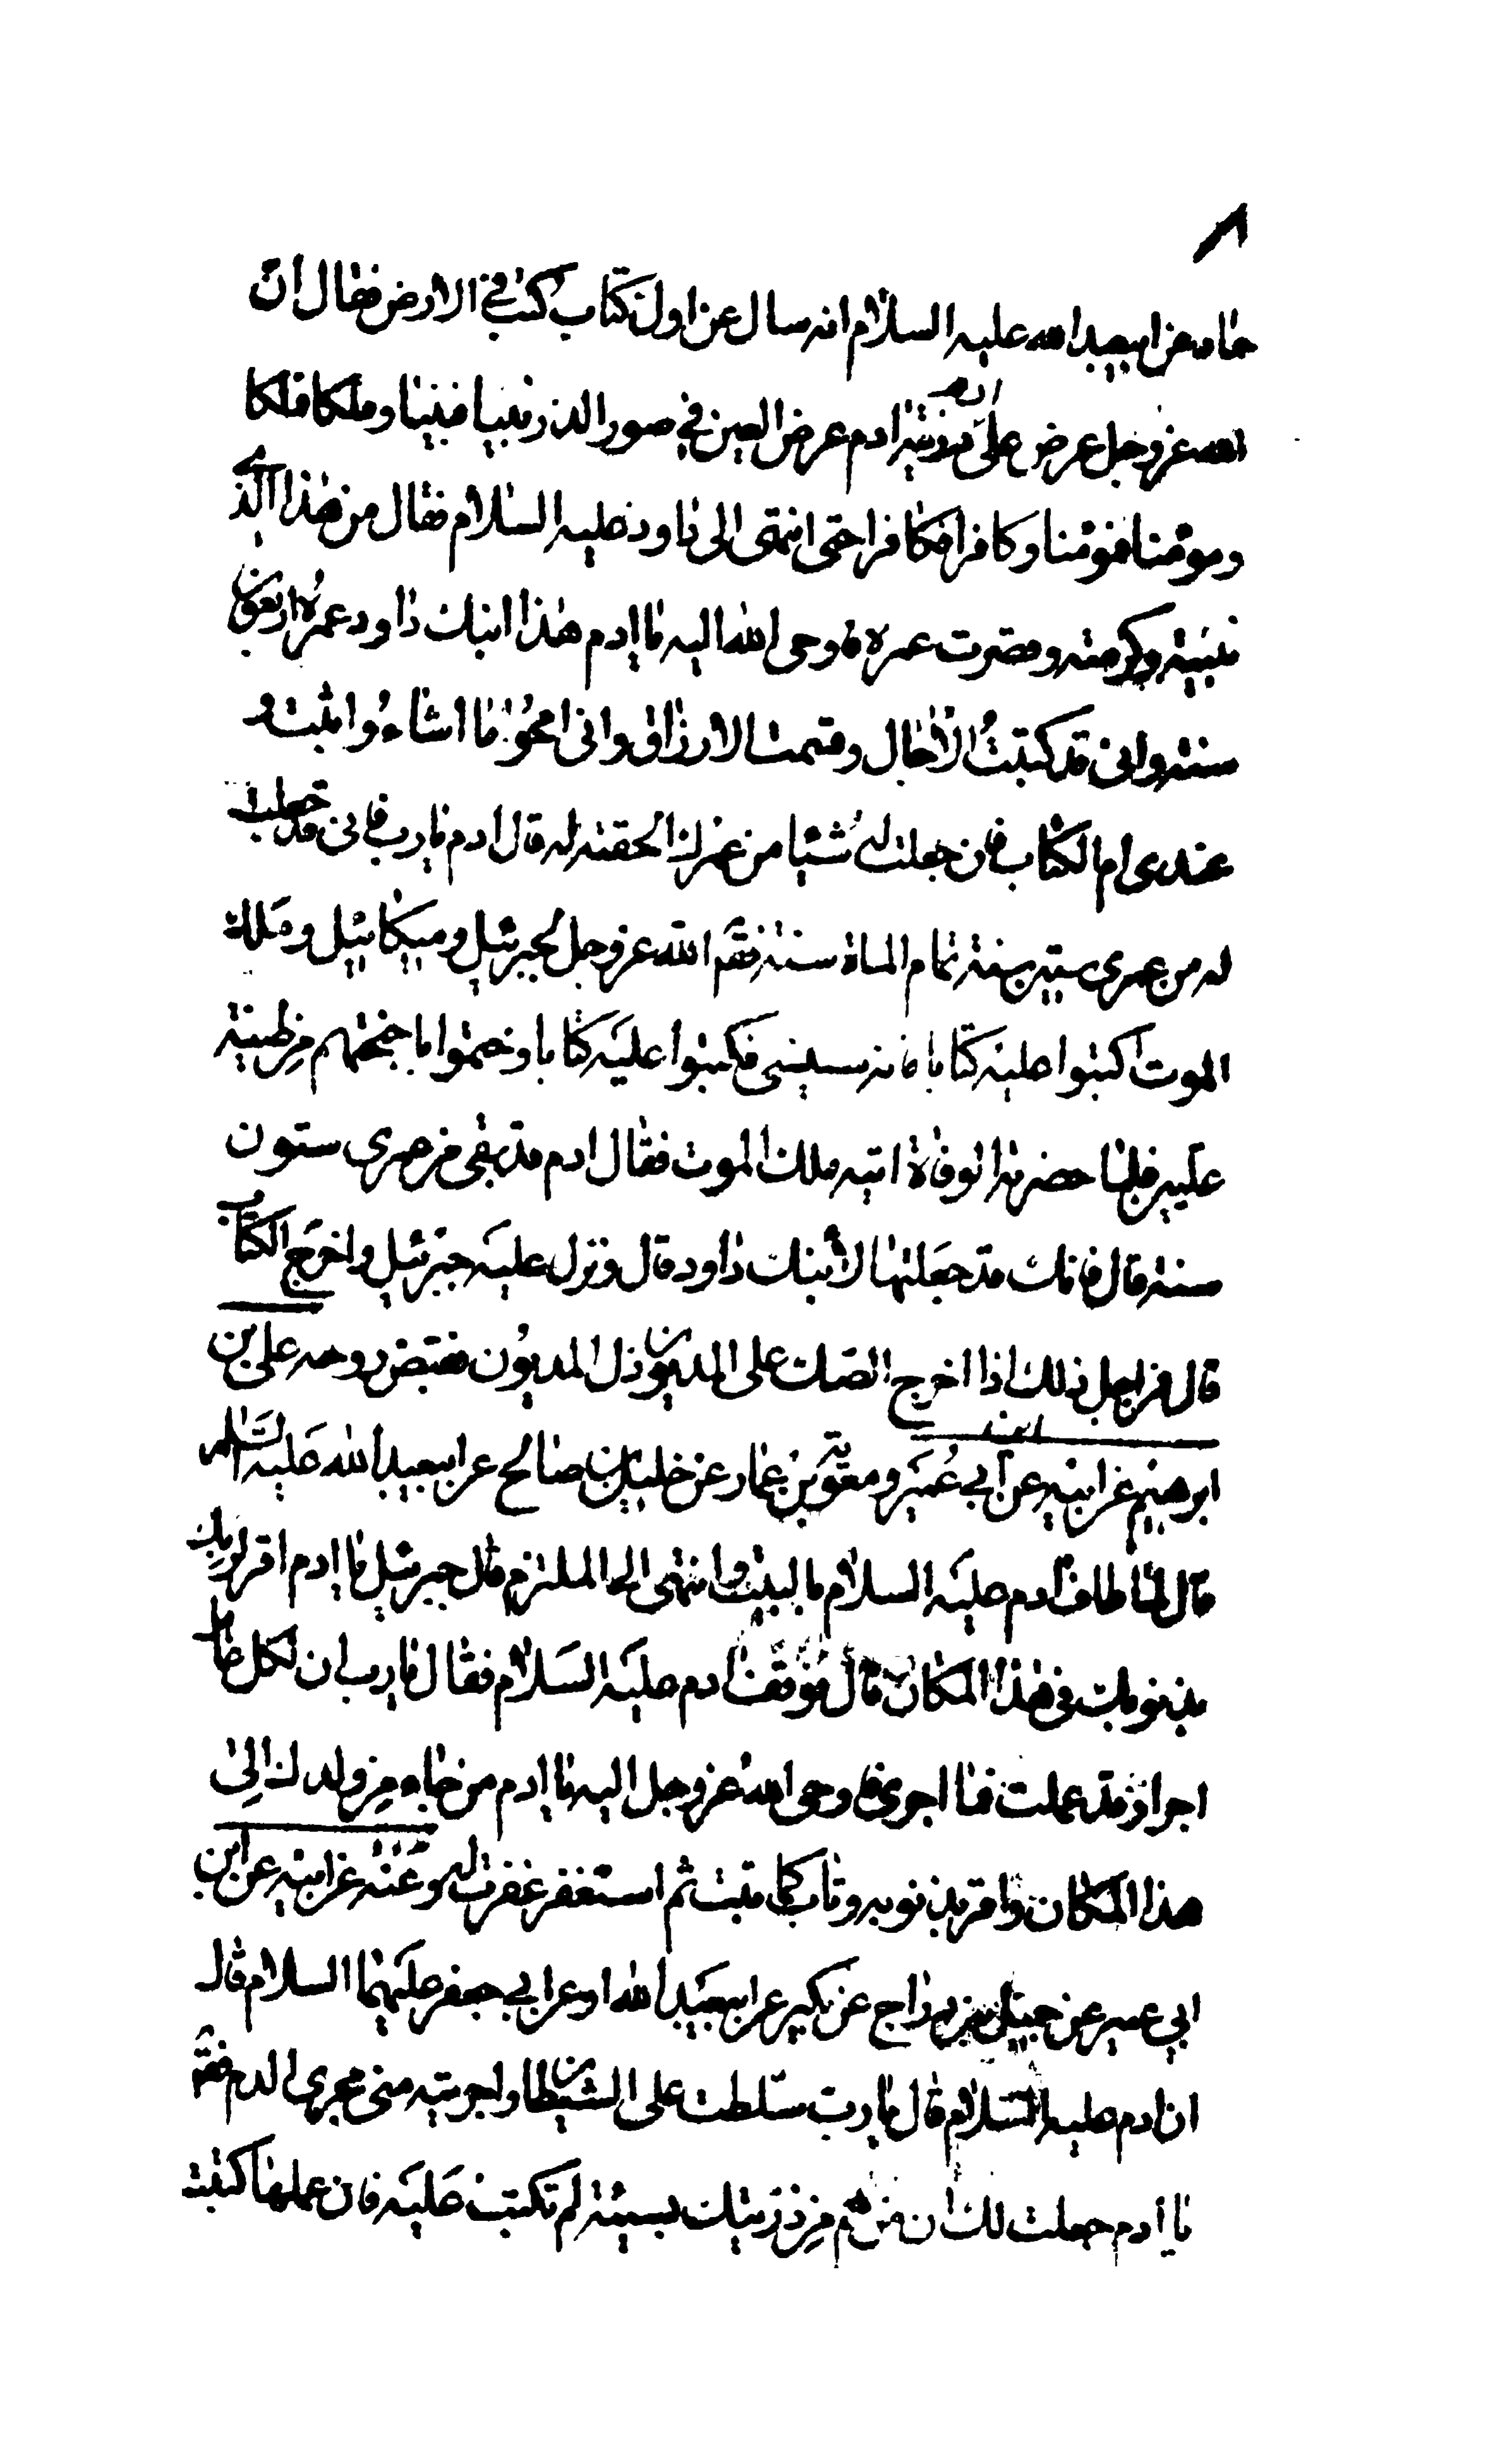 ٨
حماد عن ابيعبد الله عليه السلام انه سال عن اول كتاب كتب في الارض فقال ان
الله عز وجل عرض على ادم ذريته عرض العين في صور الذر نبيا فنبيا وملكا فملكا
ومؤمنا فمؤمنا وكافرا فكافرا حتى انتهى الى داود عليه السلام فقال من هذا الذي
نبيته وكرمته وقصرت عمره فاوحى الله اليه يا ادم هذا ابنك داود عمره اربعون
سنة واني قد كتبت الآجال وقسمت الارزاق واني امحو ما اشاء واثبت و
عندي ام الكتاب فان جعلت له شيئا من عمرك الحقته له قال ادم يا رب فاني قد جعلت
له من عمري ستين سنة تمام المائة سنة فقال الله عز وجل لجبرئيل وميكائيل وملك
الموت اكتبوا عليه كتابا فانه سينسى فكتبوا عليه كتابا وختموا باجنحتهم من طينة
عليين فلما حضرته الوفاة اتيه ملك الموت فقال ادم قد بقي من عمري ستون
سنة قال فانك قد جعلتها لابنك داود قال ونزل عليه جبرئيل واخرج الكتاب
قال فمن اجل ذلك اذا اخرج الصك على المديون ذل المديون فقبض روحه علي بن
ابرهيم عن ابيه عن ابن ابي عمير ومعوية بن عمار عن خليل بن صالح عن ابيعبد الله عليه السلام
قال لما طاف ادم عليه السلام بالبيت وانتهى الى الملتزم قال جبرئيل يا ادم اقر لربك
بذنوبك في هذا المكان قال فوقف ادم عليه السلام فقال يا رب ان لكل عامل
اجرا وقد عملت فما اجري فاوحى الله عز وجل اليه يا ادم من جاء من ولدك الى
هذا المكان واقر بذنوبه وتاب كما تبت ثم استغفر غفرت له وعنه عن ابيه عن ابن
ابي عمير عن جميل بن دراج عن بكير عن ابيعبد الله او عن ابي جعفر عليهما السلام قال
ان ادم عليه السلام قال يا رب سلطت على الشيطان واجريته مني مجرى الدم فقال
يا ادم جعلت لك ان من هم من ذريتك بسيئة لم تكتب عليه فان عملها كتبت